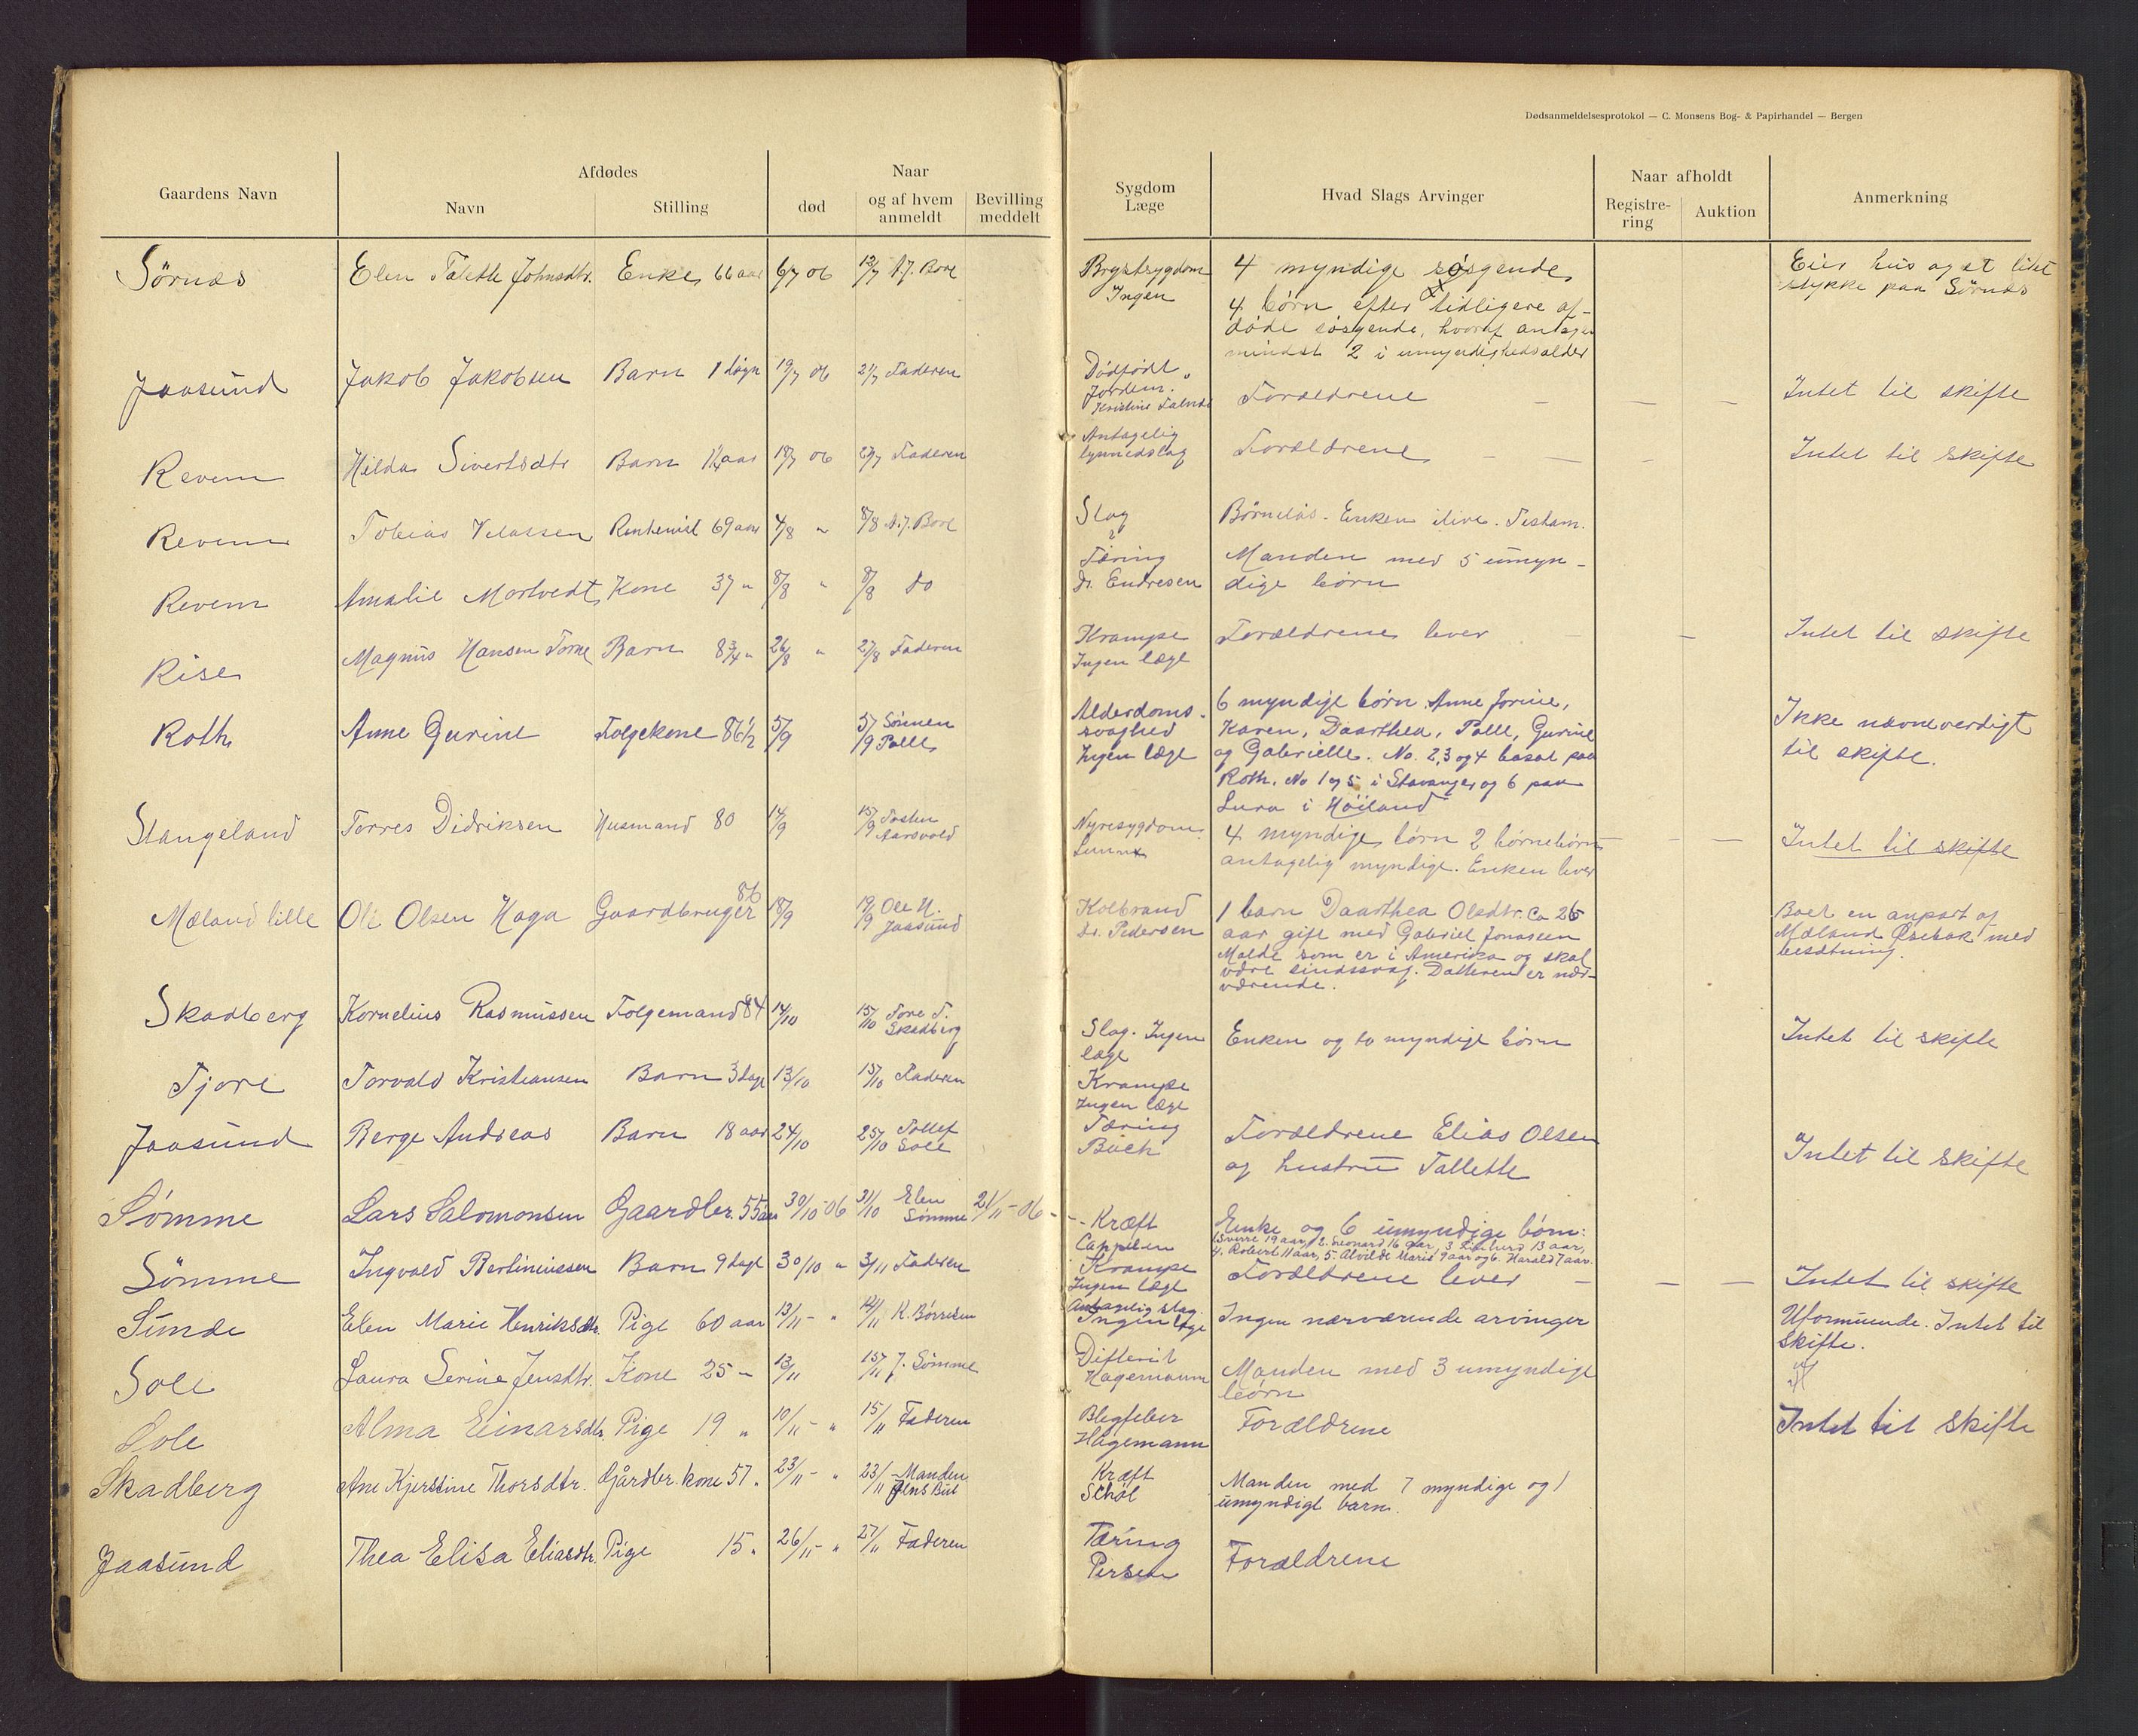 Dødsanmeldelsesprotokol — C. Monsens Bog- & Papirhandel — Bergen
Gaardens Navn | Afdødes Navn | Stilling | Naar død | og af hvem anmeldt | Bevilling meddelt | Sygdom Læge | Hvad Slags Arvinger | Naar afholdt Registrering | Auktion | Anmerkning
Sörnes Elen Talette Johnsdtr. Enke 66 aar 6/7 06 12/7 A.J. Bore
Brystsygdom 4 myndige søsgende Eier hus og et litet
Ingen 4 børn efter tidligere af- stykke paa Sörnes
døde søsgende, hvoraf
mindst 2 i umyndighedsalder
Jaasund Jakob Jakobsen Barn 1 døgn 19/7 06 21/7 Faderen
Dødfødt Jordem. Kristine Forældrene — — — Intet til skifte
Revem Hilda Sivertsdtr Barn 18/7 06 Faderen
Antagelig Forældrene — — — Intet til skifte
Revem Tobias Rentenist 69 aar 4/8 " 8/8 A.J. Bore
Slag Børneløs. Enken ilive. Testam.
Revem Amalie Mortvedt Kone 37 " 8/8 " 8/8 do
Tæring Manden med 5 umyn-
Dr. Endresen dige børn
Rise Magnus Hansen Barn 8 3/4 " 26/8 " 27/8 Faderen
Krampe Forældrene lever — Intet til skifte
Ingen læge
Roth Anne Gurine Følgekone 86 1/2 5/9 5/9 Sønnen Palle
Alderdoms- 6 myndige børn Anne Jorine,
svaghed Karen, Daarthea, Palle, Gurine Ikke nævneverdigt
Ingen læge og Gabrielle. No. 2, 3 og 4 bosat paa til skifte.
Roth. No 1 og 5 i Stavanger og 6 paa
Lura i Höiland
Stangeland Torres Didriksen Husmand 80 14/9 15/9 Aarsvold
Nyresygdom 4 myndige børn 2 børnebørn — — Intet til skifte
antagelig myndige. Enken lever
Mæland lille Ole Olsen Haga Gaardbruger 86 18/9 19/9 Ole H. Jaasund
Kolbrand 1 barn Daarthea Olsdtr. ca 26 Boet en anpart af
Dr. Pedersen aar gift med Gabriel Jonassen Mæland med
Malde som er i Amerika og skal besætning.
være sindssvag. Datteren er nær-
værende.
Skadberg Kornelius Rasmussen Følgemand 84 14/10 15/10 Tore T. Skadberg
Slag. Ingen læge Enken og to myndige børn Intet til skifte
Tjore Torvald Kristiansen Barn 3 dage 13/10 15/10 Faderen
Krampe
Ingen læge
Jaasund Berge Andreas Barn 18 aar 24/10 25/10 Tollef Sole
Tæring Forældrene Elias Olsen
Buch og hustru Tallette Intet til skifte
Sømme Lars Salomonsen Gaardbr. 55 aar 30/10-06 31/10 Elen Sømme 21/11-06-
Kræft Enke og 6 umyndige børn:
Cappelen 1 Sverre 19 aar, 2. Leonard 16 aar, 3 13 aar,
4. Robert 11 aar, 5. Alvilde Marie 9 aar og 6. Harald 7 aar.
Sömme Ingvald Bertiniussen Barn 9 dage 30/10 " 3/11 Faderen
Krampe Forældrene lever — — — Intet til skifte
Ingen læge
Sunde Elen Marie Henriksdtr. Pige 60 aar 13/11 - " 14/11 K. Børresen
Antagelig slag. Ingen læge Ingen nærværende arvinger Uformuende. Intet til
skifte.
Sole Laura Serine Jensdtr. Kone 25 - 13/11 15/11 J. Sömme
Difterit Manden med 3 umyndige
Hagemann børn
Sole Alma Einarsdtr. Pige 19 " 10/11 - " 15/11 Faderen
Blegfeber Forældrene Intet til skifte
Hagemann
Skadberg Ane Kjerstine Thorsdtr. Gårdbr. kone 57 " 23/11 - " 23/11 Manden Jens
Kræft Manden med 7 myndige og 1
Schöl umyndigt barn.
Jaasund Thea Elisa Eliasdtr. Pige 15 " 26/11 - " 27/11 Faderen
Tæring Forældrene
Persen